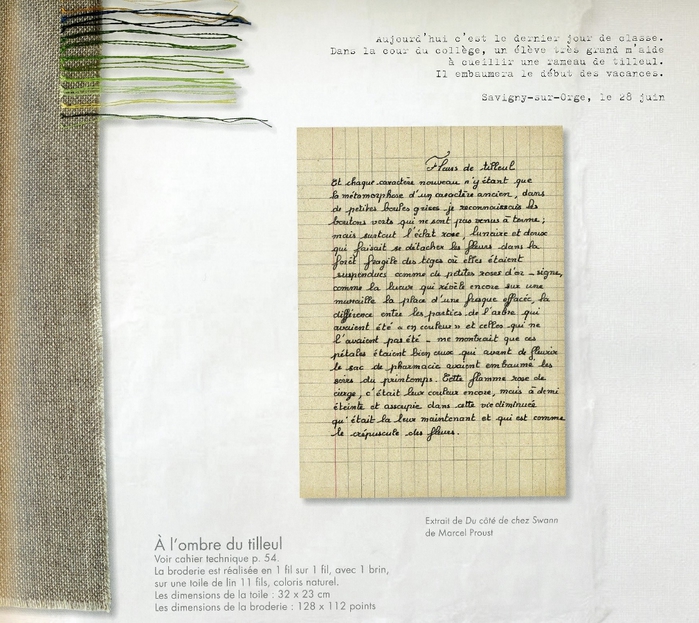 Aujourd'hui c'est le dernier jour de classe.
Dans la cour du collège, un élève très grand m'aide
à cueillir une rameau de tilleul.
Il embaumera le début des vacances.
Savigny-sur-Orge, le 28 juin
Fleurs de tilleul
Et chaque caractère nouveau n'y étant que
la métamorphose d'un caractère ancien, dans
de petites boules grises je reconnaissais les
boutons verts qui ne sont pas venus à terme ;
mais surtout l'éclat rose, lunaire et doux
qui faisait se détacher les fleurs dans la
forêt fragile des tiges où elles étaient
suspendues comme de petites roses d'or - signe,
comme la lueur qui révèle encore sur une
muraille la place d'une fresque effacée, la
différence entre les parties de l'arbre qui
avaient été « en couleur » et celles qui ne
l'avaient pas été - me montrait que ces
pétales étaient bien ceux qui avant de fleurir
le sac de pharmacie avaient embaumé les
soirs du printemps. Cette flamme rose de
cierge, c'était leur couleur encore, mais à demi
éteinte et assoupie dans cette vie diminuée
qu'était la leur maintenant et qui est comme
le crépuscule des fleurs.
Extrait de Du côté de chez Swann
de Marcel Proust
À l'ombre du tilleul
Voir cahier technique p. 54.
La broderie est réalisée en 1 fil sur 1 fil, avec 1 brin,
sur une toile de lin 11 fils, coloris naturel.
Les dimensions de la toile : 32 x 23 cm
Les dimensions de la broderie : 128 x 112 points